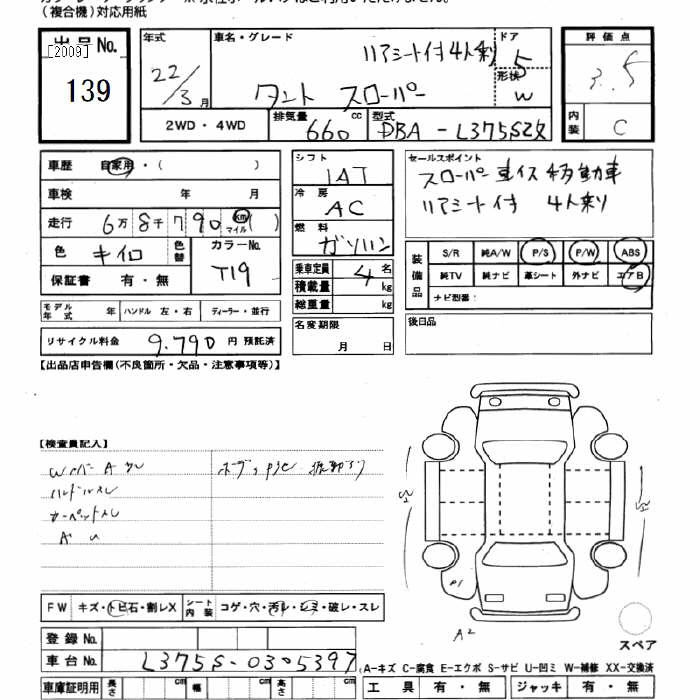 (複合機)対応用紙
出品No. [2009] 139
年式 22/3月
車名・グレード リアシート付 4人乗り タント スローパー
ドア 5
形状 W
評価点 3.5
内装 C
2WD・4WD 排気量 660 cc 型式 DBA-L375S改
車歴 自家用・( )
車検 年 月
走行 6万8千790 km マイル( )
色 キイロ 色替 カラーNo. T19
保証書 有・無
モデル年式 年 ハンドル 左・右 ディーラー・並行
リサイクル料金 9,790 円 預託済
シフト IAT
冷房 AC
燃料 ガソリン
乗車定員 4 名
積載量 kg
総重量 kg
名変期限 月 日
セールスポイント
スロパー 車イス 移動車
リアシート付 4人乗り
装備品 S/R 純A/W P/S P/W ABS
純TV 純ナビ 革シート 外ナビ エアB
ナビ型番:
後日品
【出品店申告欄(不良箇所・欠品・注意事項等)】
【検査員記入】
ハンドルスレ
カーペットスレ
P1
A2
スペア
FW キズ・トビ石・割レX シート内装 コゲ・穴・汚レ・シミ・破レ・スレ
登録No.
車台No. L375S-0305397
A-キズ C-腐食 E-エクボ S-サビ U-凹ミ W-補修 XX-交換済
車庫証明用 長さ cm 幅 cm 高さ cm 工具 有・無 ジャッキ 有・無